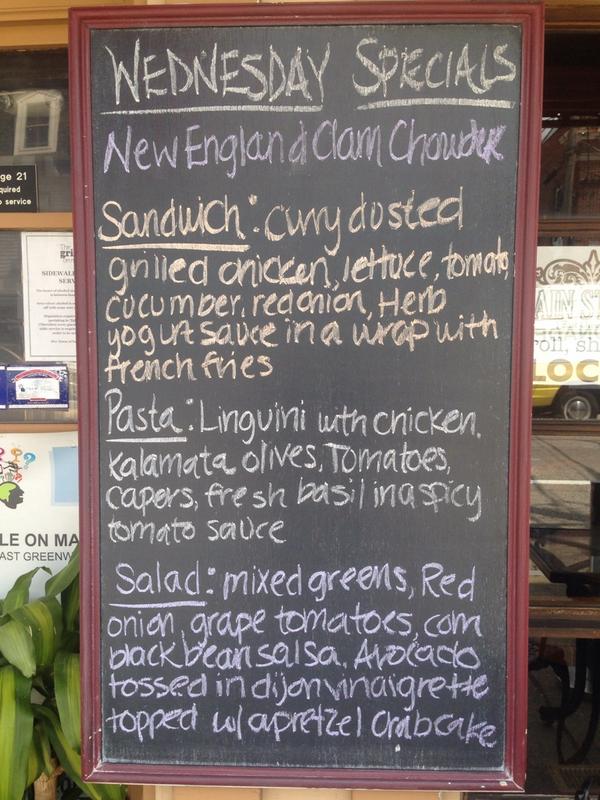 WEDNESDAY SPECIALS
New England Clam Chowder
Sandwich: curry dusted
grilled chicken, lettuce, tomato,
cucumber, red onion, Herb
yogurt sauce in a wrap with
french fries
Pasta: Linguini with chicken,
Kalamata olives, Tomatoes,
capers, fresh basil in a spicy
tomato sauce
Salad: mixed greens, Red
onion, grape tomatoes, corn
black bean salsa, Avocado
tossed in dijon vinaigrette
topped w/ a pretzel crabcake
ge 21
quired
o service
The
gri
SIDEWAL
SERV
LE ON MA
AST GREENW
AIN ST
roll, sh
LOC